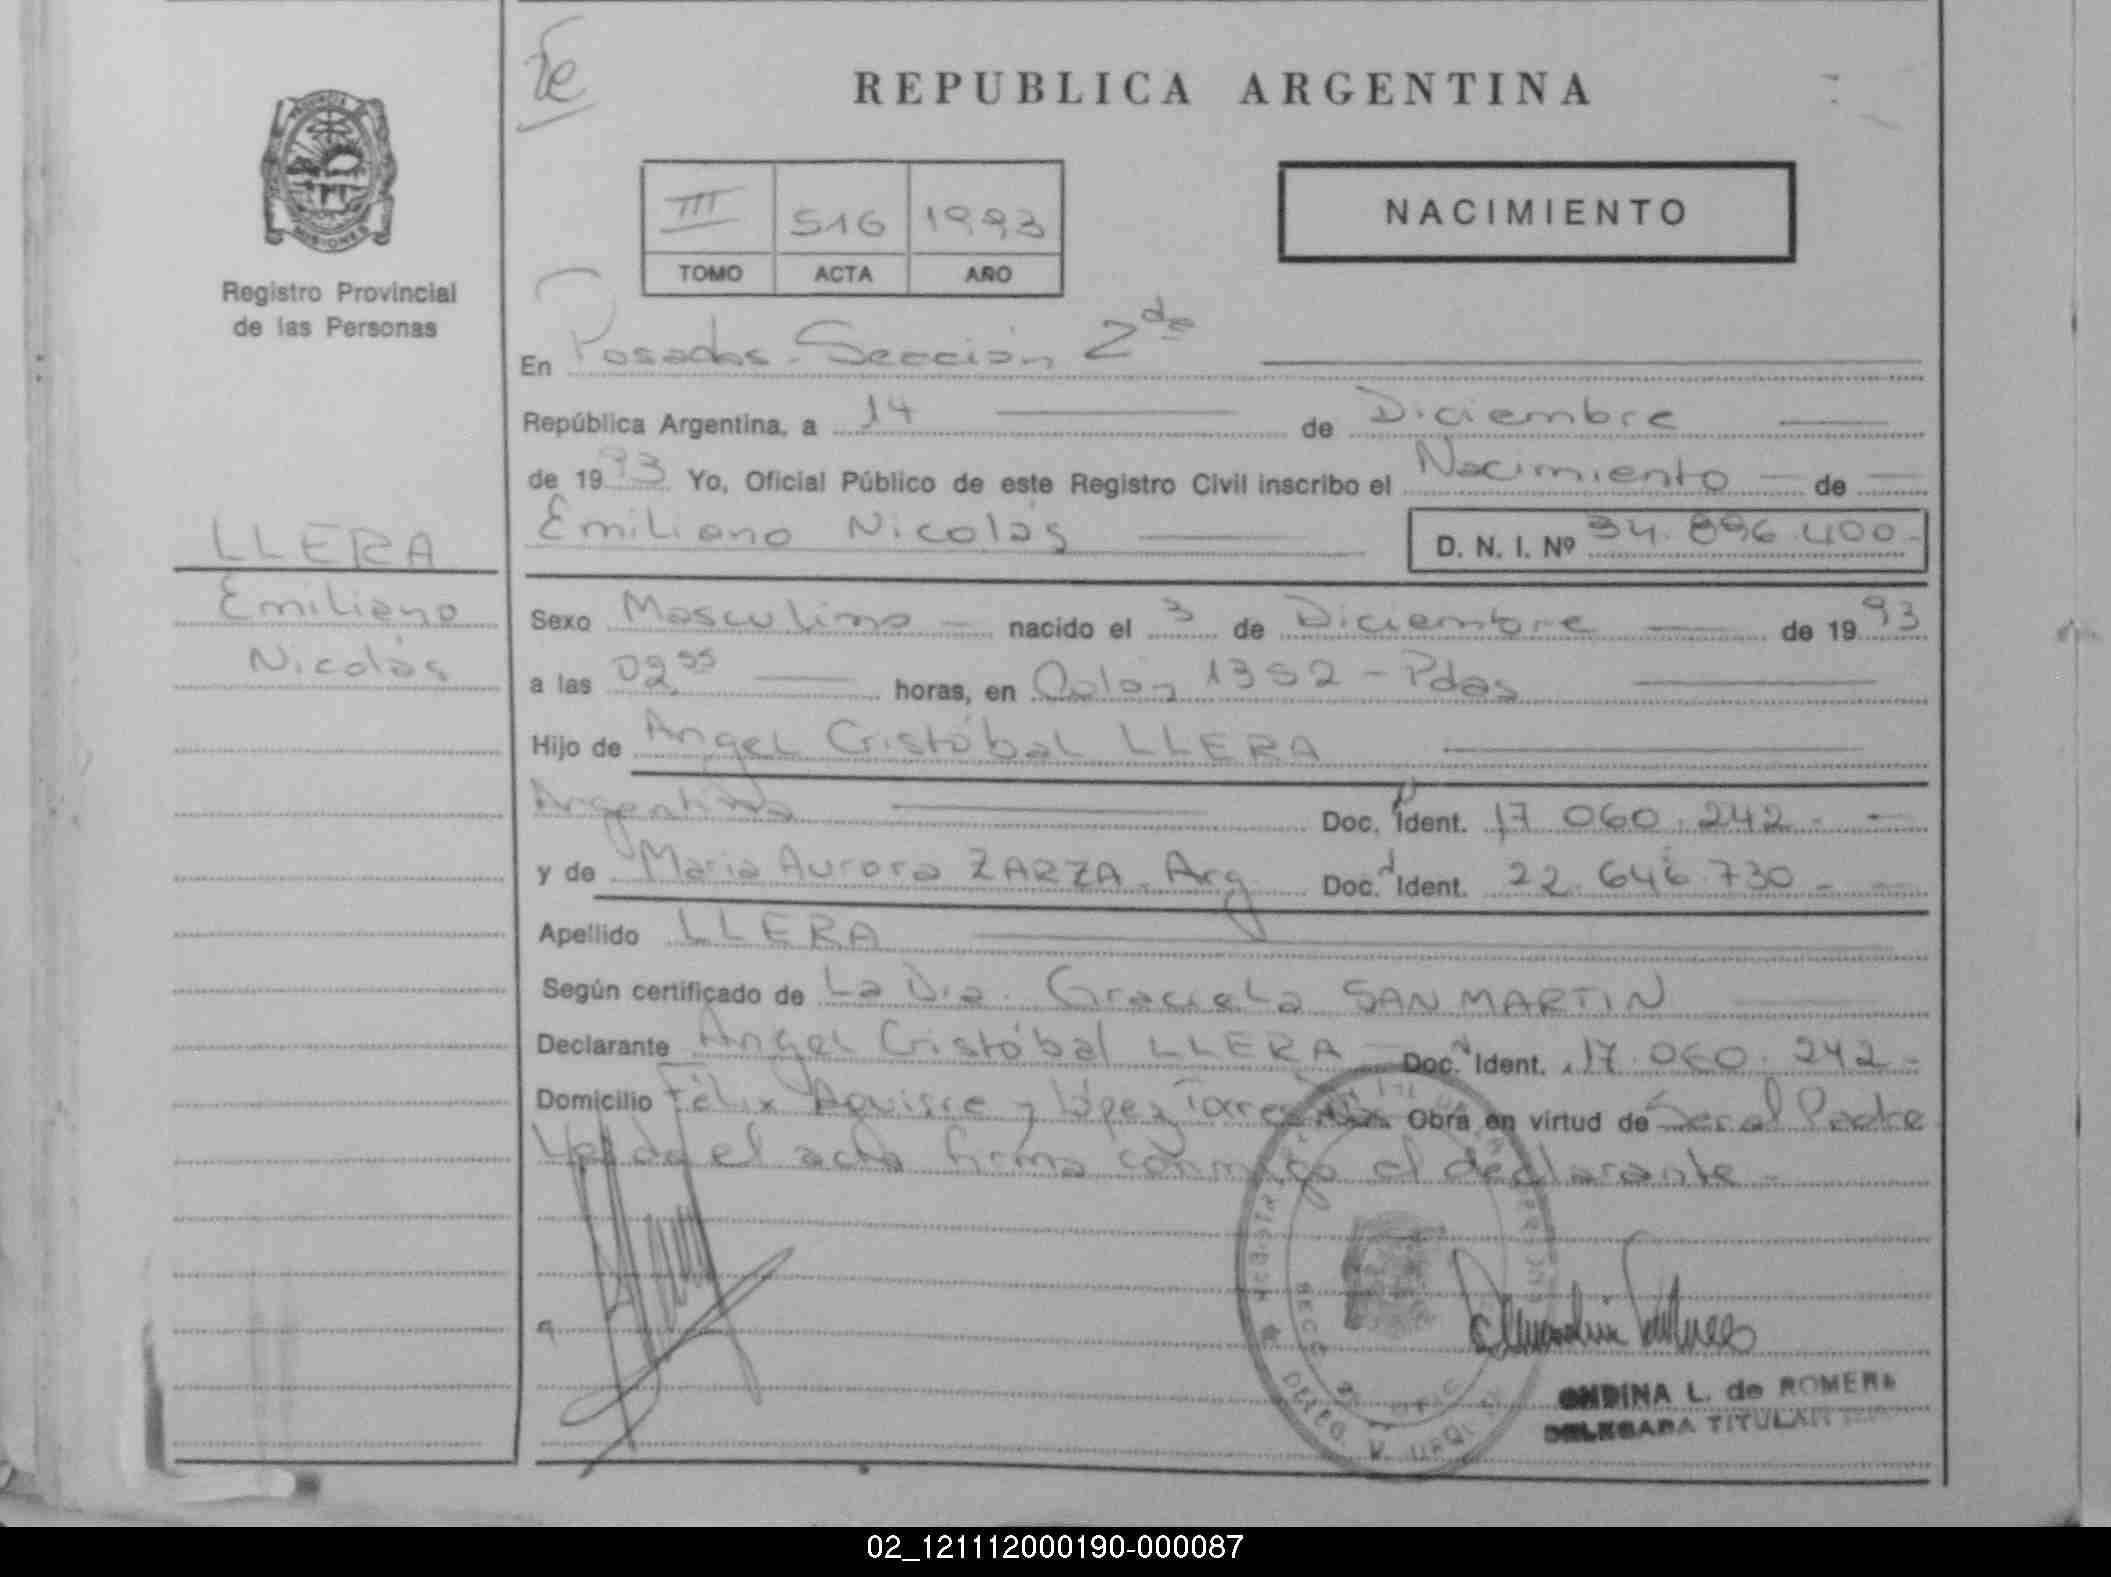 REPUBLICA ARGENTINA
PROVINCIA
MISIONES
Registro Provincial
de las Personas
III 516 1993
TOMO ACTA AÑO
NACIMIENTO
En Posadas. Sección 2da
República Argentina, a 14 de Diciembre
de 1993 Yo, Oficial Público de este Registro Civil inscribo el Nacimiento de
Emiliano Nicolás D. N. I. Nº 34.896.400.-
LLERA
Emiliano
Nicolás
Sexo Masculino nacido el 3 de Diciembre de 1993
a las 02 55 horas, en Colón 1352 - Pdas
Hijo de Angel Cristóbal LLERA
Argentino Doc. Ident. 17.060.242.-
y de Maria Aurora ZARZA. Arg Doc. Ident. 22.646.730.-
Apellido LLERA
Según certificado de La Dra. Graciela SAN MARTIN
Declarante Angel Cristóbal LLERA Doc. Ident. 17.060.242.-
Domicilio Félix Aguirre y López Torres Obra en virtud de Ser el Padre
Leida el acta firma conmigo el declarante.-
ONDINA L. de ROMERA
DELEGADA TITULAR
02_121112000190-000087